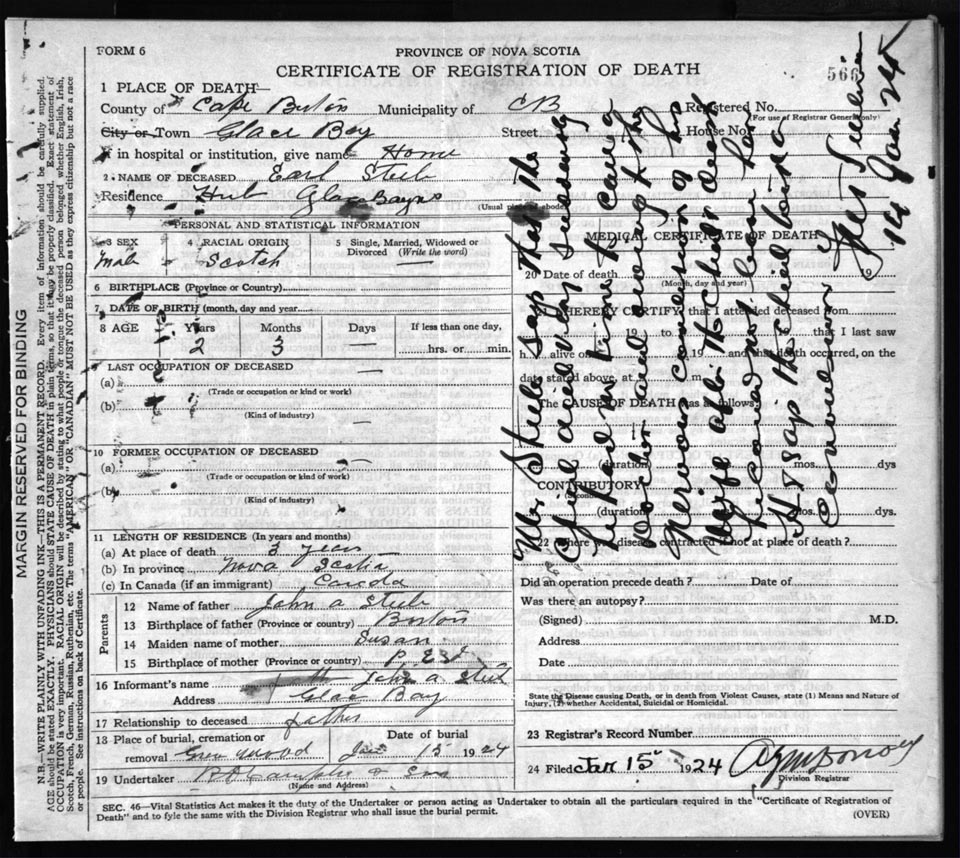 FORM 6
PROVINCE OF NOVA SCOTIA
CERTIFICATE OF REGISTRATION OF DEATH
566
1 PLACE OF DEATH—
County of Cape Breton Municipality of CB Registered No.
(For use of Registrar General only)
City or Town Glace Bay Street House No.
If in hospital or institution, give name Home
2. NAME OF DECEASED Earl Steele
Residence Hub Glace Bay NS
(Usual place of abode)
PERSONAL AND STATISTICAL INFORMATION
3 SEX
Male
4 RACIAL ORIGIN
Scotch
5 Single, Married, Widowed or Divorced (Write the word)
—
6 BIRTHPLACE (Province or Country)
7 DATE OF BIRTH (month, day and year)
8 AGE Years Months Days If less than one day,
2 3 — hrs. or min.
9 LAST OCCUPATION OF DECEASED
(a) —
(Trade or occupation or kind or work)
(b)
(Kind of industry)
—
10 FORMER OCCUPATION OF DECEASED
(a) —
(Trade or occupation or kind of work)
(b)
(Kind of industry)
—
11 LENGTH OF RESIDENCE (In years and months)
(a) At place of death 3 years
(b) In province Nova Scotia
(c) In Canada (if an immigrant) Canada
Parents
12 Name of father John A Steele
13 Birthplace of father (Province or country) Boston
14 Maiden name of mother Susan
15 Birthplace of mother (Province or country) P.E.I.
16 Informant's name John A. Steele
Address Glace Bay
17 Relationship to deceased father
18 Place of burial, cremation or removal Date of burial
Greenwood Jan 15 1924
19 Undertaker & Sons
(Name and Address)
MEDICAL CERTIFICATE OF DEATH
20 Date of death 19
(Month, day and year)
I HEREBY CERTIFY, that I attended deceased from
19 to that I last saw
h alive on 19 and that death occurred, on the
date stated above, at m.
The CAUSE OF DEATH was as follows:
(duration) mos. dys
CONTRIBUTORY
(duration) mos. dys.
22 Where was disease contracted if not at place of death?
Did an operation precede death? Date of
Was there an autopsy?
(Signed) M.D.
Address
Date
State the Disease causing Death, or in death from Violent Causes, state (1) Means and Nature of Injury, (2) whether Accidental, Suicidal or Homicidal.
23 Registrar's Record Number
24 Filed Jan 15 1924
Division Registrar
Mr. Steele says that the
Child died very suddenly
had no time to call a
Doctor and owing to the
nervous condition of his
Wife after the child's death
He says the child was in a
Convulsion
14 Jan 24
SEC. 46—Vital Statistics Act makes it the duty of the Undertaker or person acting as Undertaker to obtain all the particulars required in the "Certificate of Registration of
Death" and to fyle the same with the Division Registrar who shall issue the burial permit. (OVER)
MARGIN RESERVED FOR BINDING
N.B.—WRITE PLAINLY WITH UNFADING INK—THIS IS A PERMANENT RECORD. Every item of information should be carefully supplied.
AGE should be stated EXACTLY. PHYSICIANS should STATE CAUSE OF DEATH in plain terms, so that it may be properly classified. Exact statement of
OCCUPATION is very important. RACIAL ORIGIN will be described by stating to what people or tongue the deceased person belonged whether English, Irish,
Scotch, French, German, Russian, Ruthenian, etc. The terms "AMERICAN" OR "CANADIAN" MUST NOT BE USED as they express citizenship but not a race
or people. See instructions on back of Certificate.